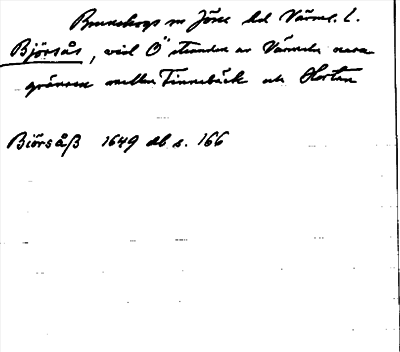 Brunskogs sn Jösse hd Värml. l.
Björsås, vid Ö stranden av Värmeln nära
gränsen mellan Finnebäck och
Biörsåß 1649 db s. 166